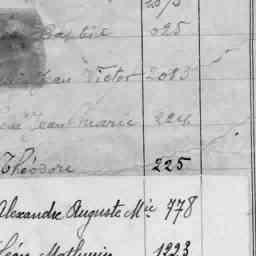 Baptiste 025
Jean Victor 2083
Jean Marie 224
Théodore 225
Alexandre Auguste Mie 778
Léon Mathurin 1223